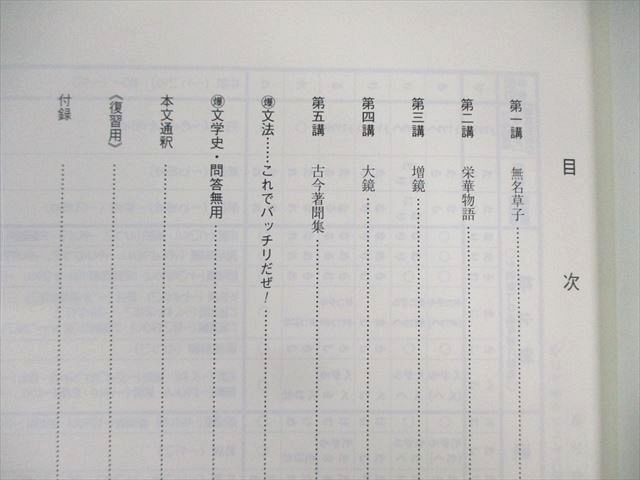 目次
第一講 無名草子
第二講 栄華物語
第三講 増鏡
第四講 大鏡
第五講 古今著聞集
㊙文法……これでバッチリだぜ!
文学史・問答無用
本文通釈
《復習用》
付録